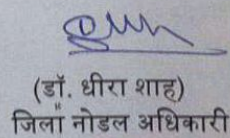 (डॉ. धीरा शाह)
जिला नोडल अधिकारी